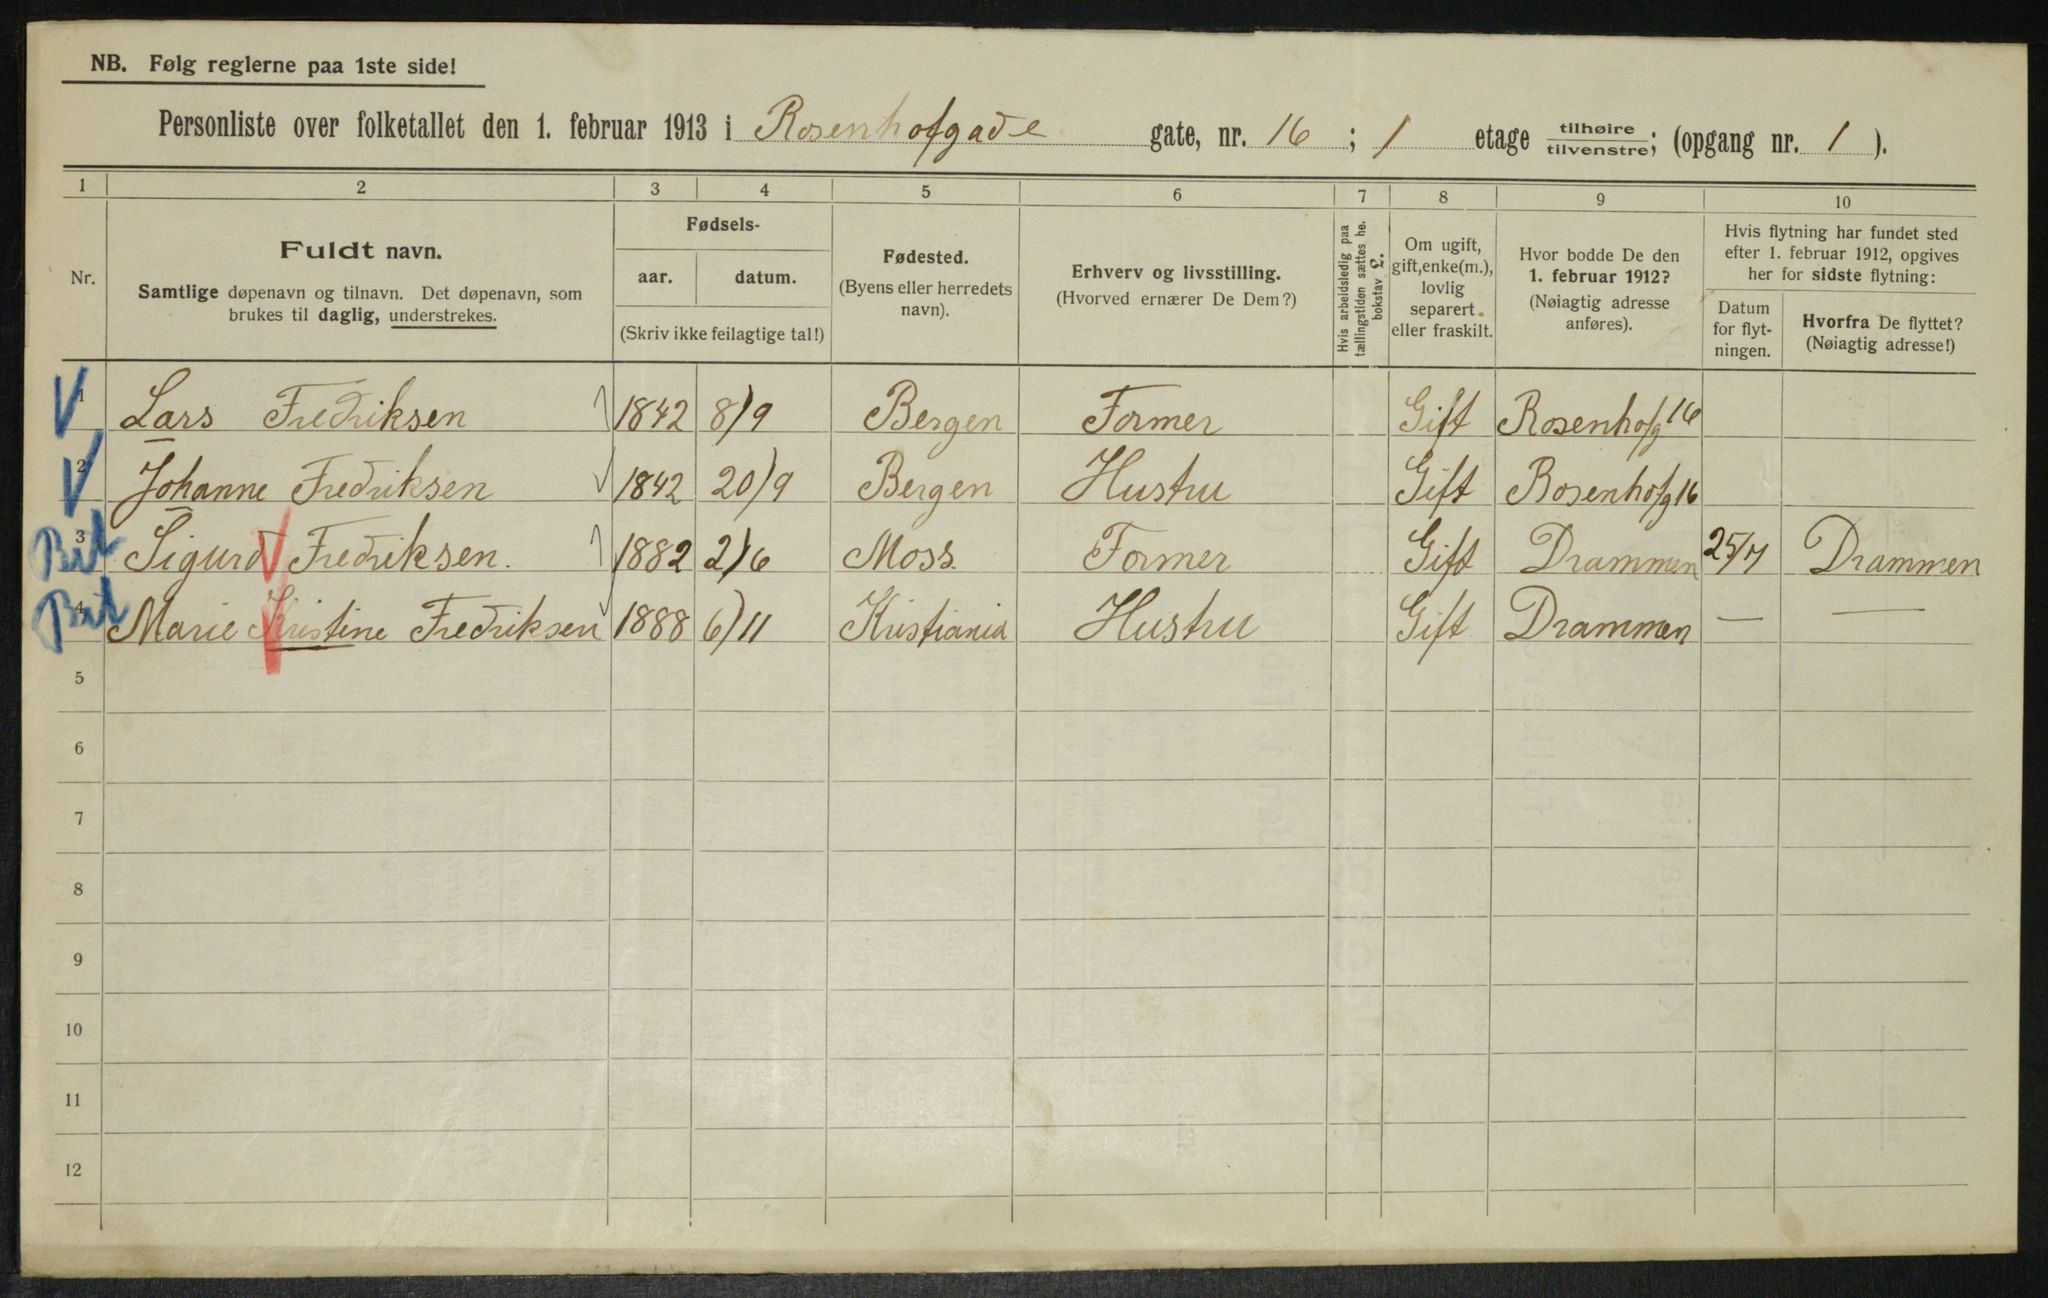 NB. Følg reglerne paa 1ste side!
Personliste over folketallet den 1. februar 1913 i Rosenhofgade gate, nr. 16 ; 1 etage tilhøire tilvenstre; (opgang nr. 1 ).
1 2 3 4 5 6 7 8 9 10
Nr.
Fuldt navn.
Samtlige døpenavn og tilnavn. Det døpenavn, som
brukes til daglig, understrekes.
Fødsels-
aar. datum.
(Skriv ikke feilagtige tal!)
Fødested.
(Byens eller herredets
navn).
Erhverv og livsstilling.
(Hvorved ernærer De Dem?)
Hvis arbeidsledig paa
tællingstiden sættes he.
bokstav L.
Om ugift,
gift, enke(m.),
lovlig
separert
eller fraskilt.
Hvor bodde De den
1. februar 1912?
(Nøiagtig adresse
anføres).
Hvis flytning har fundet sted
efter 1. februar 1912, opgives
her for sidste flytning:
Datum
for flyt-
ningen.
Hvorfra De flyttet?
(Nøiagtig adresse!)
1 Lars Fredriksen 1842 8/9 Bergen Former Gift Rosenhofg 16
2 Johanne Fredriksen 1842 20/9 Bergen Hustru Gift Rosenhofg 16
Bet 3 Sigurd Fredriksen. 1882 2/6 Moss. Former Gift Drammen 25/7 Drammen
Bet 4 Marie Kristine Fredriksen 1888 6/11 Kristiania Hustru Gift Drammen — —
5
6
7
8
9
10
11
12